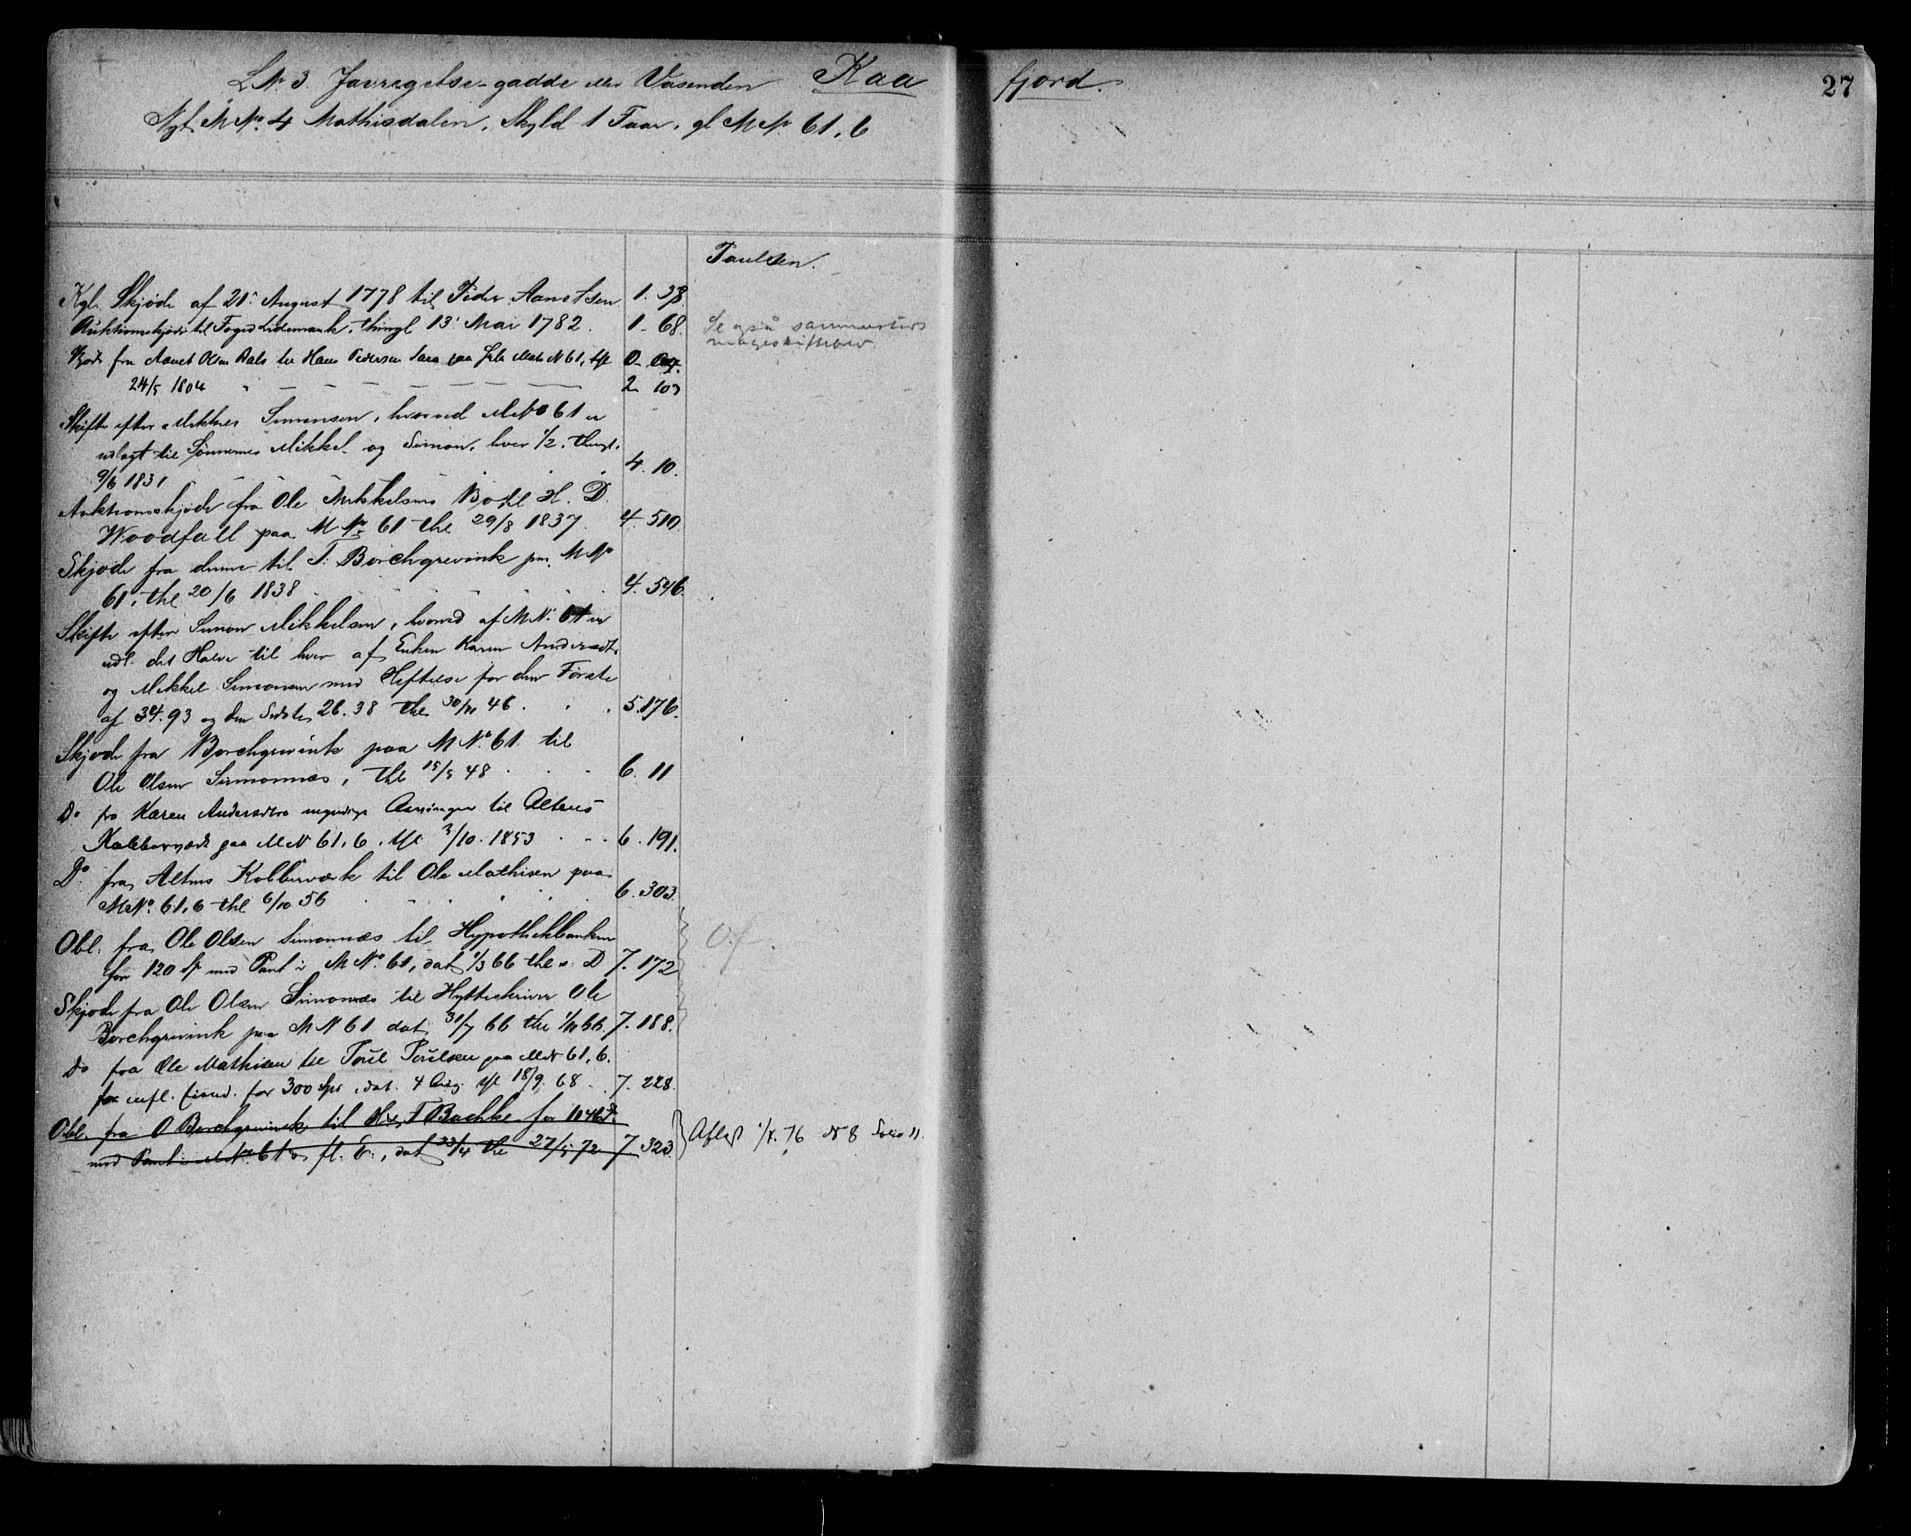 L№ 3 Javregetse-gadde eller Vasenden Kaafjord. 27
Nyt M№ 4 Mathisdalen, Skyld 1 Faar, gl M№ 61,6
Paulsen.
Kgl. Skjøde af 21. August 1778 til Peder Aanetsen 1. 38.
Auktionsskjøde til Foged Lidemark, thingl 13' Mai 1782. 1- 68. Se også sammesteds
mageskiftebrev.
fra Aanet Olsen til Hans Pedersen paa M№ 61, 0-
24/5 1804 2 103
Skifte efter Mikkel Simonsen, hvorved M№ 61 er
udlagt til Sønnerne Mikkel og Simon, hver 1/2, thingl.
9/6 1831 4. 10.
Auktionsskjøde fra Ole Mikkelsens Bo til H. D.
Woodfall paa M№ 61 thl 29/8 1837. 4. 510.
Skjøde fra denne til T. Borchgrevink paa M№
61, thl 20/6 1838 4. 546.
Skifte efter Simon Mikkelsen, hvorved af M№ 61 er
udl. det Halve til hver af Enken Karen Andersdtr
og Mikkel Simonsen med Heftelse for den Første
af 34.93 og den Sidste 26.38 thl 30/11 46. 5.176.
Skjøde fra Borchgrevink paa M№ 61 til
Ole Olsen Simonnæs, thl 15/5 48 6. 11
Do fra Karen Andersdtrs myndige Arvinger til Altens
Kobberværk paa M№ 61,6, thl 3/10. 1853 6. 191.
Do fra Altens Kobberværk til Ole Mathisen paa
M№ 61,6 thl 6/10 56 6. 303
Obl. fra Ole Olsen Simonnæs til Hypothekbanken
for 120 Sp med Pant i M№ 61, dat 1/3 66 thl s. D 7. 172
Skjøde fra Ole Olsen Simonnæs til Hytteskriver Ole
Borchgrevink paa M№ 61 dat 31/7 66 thl 1/11 66. 7. 188.
Do fra Ole Mathisen til Poul Poulsen paa M№ 61,6.
for 300 Spd, dat. 4 Aug. thl 18/9 68 7. 228.
Obl. fra O Borchgrevink til T Backke for
med Pant i M№ 61 fl. E., dat 23/4 thl 27/5 72 7 323. Aflyst 76 № 8 Folio 11.